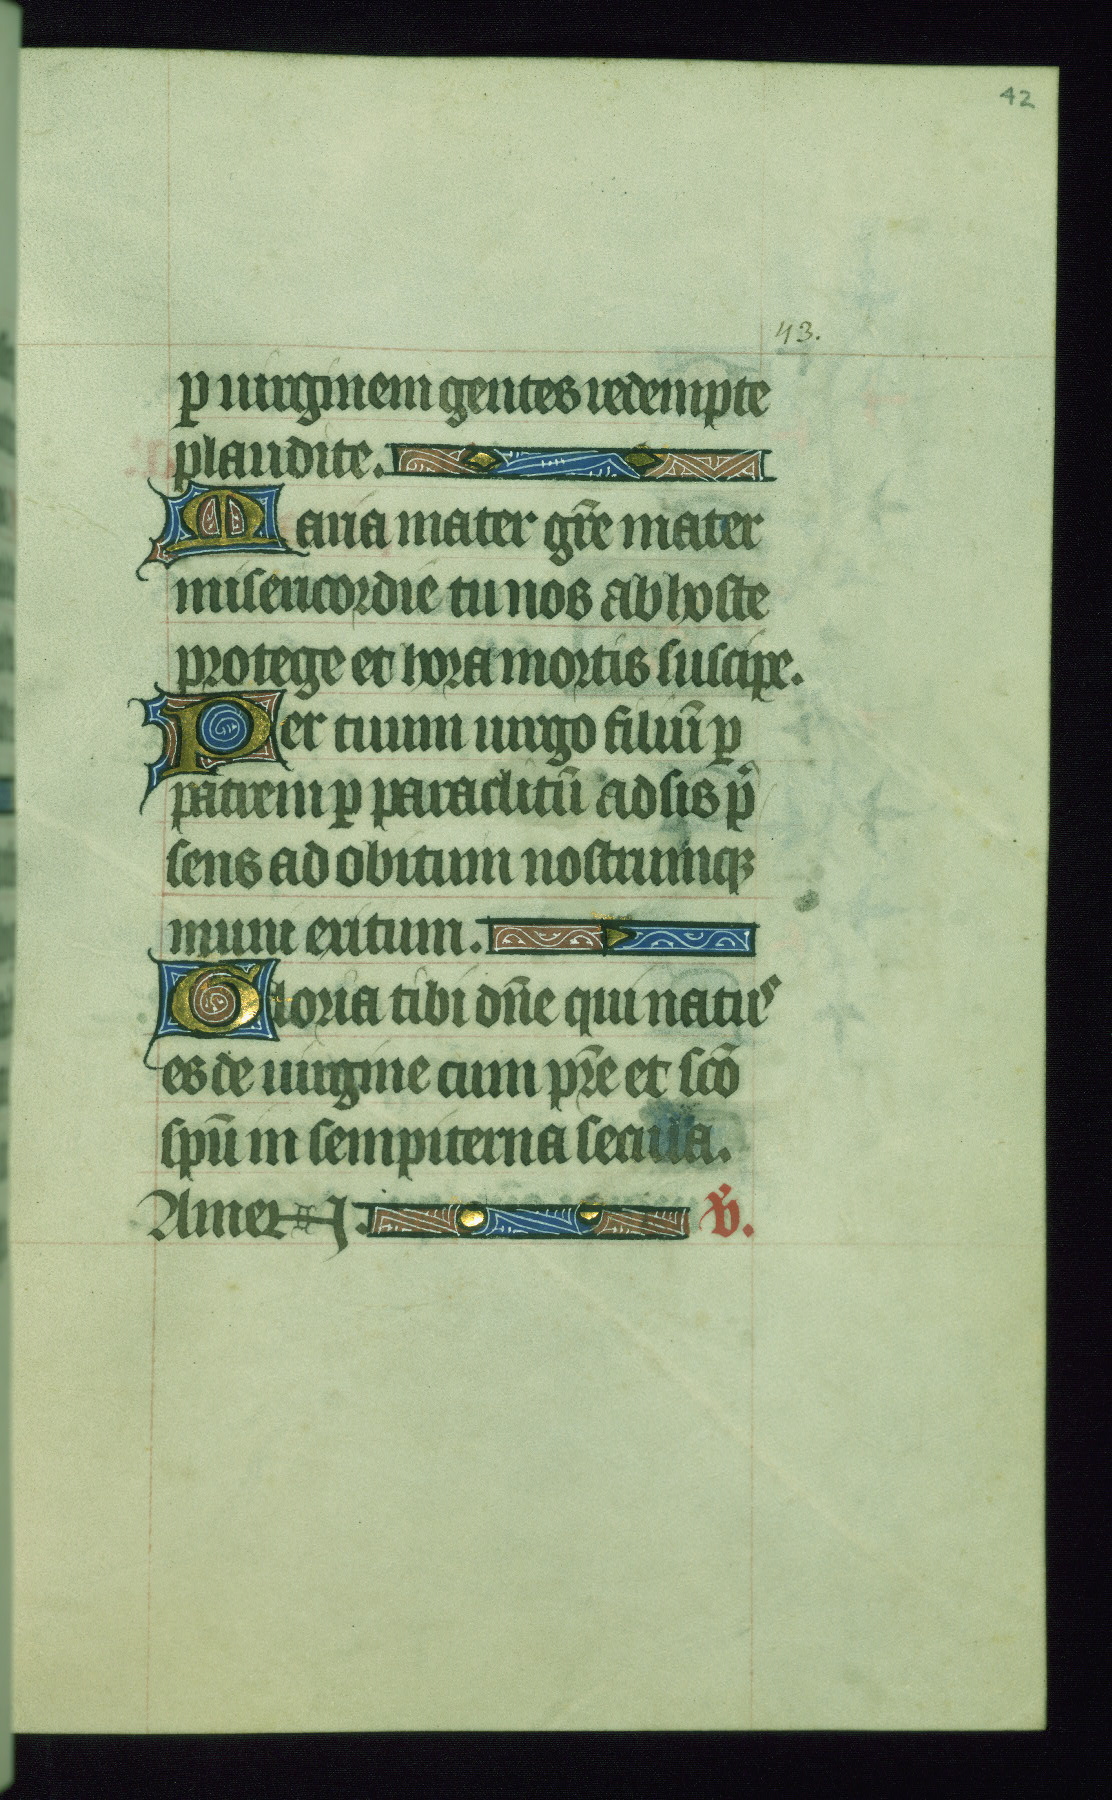 42
43.
p uirginem gentes redempte
plaudite.
Maria mater gr̄e mater
misericordie tu nos ab hoste
protege et hora mortis suscipe.
Per tuum uirgo filiū p
patrem p paraclitū adsis p̄
sens ad obitum nostrumqꝫ
muni exitum.
Gloria tibi dn̄e qui natus
es de uirgine cum pr̄e et scō
spū in sempiterna secula.
Amen. V̄.